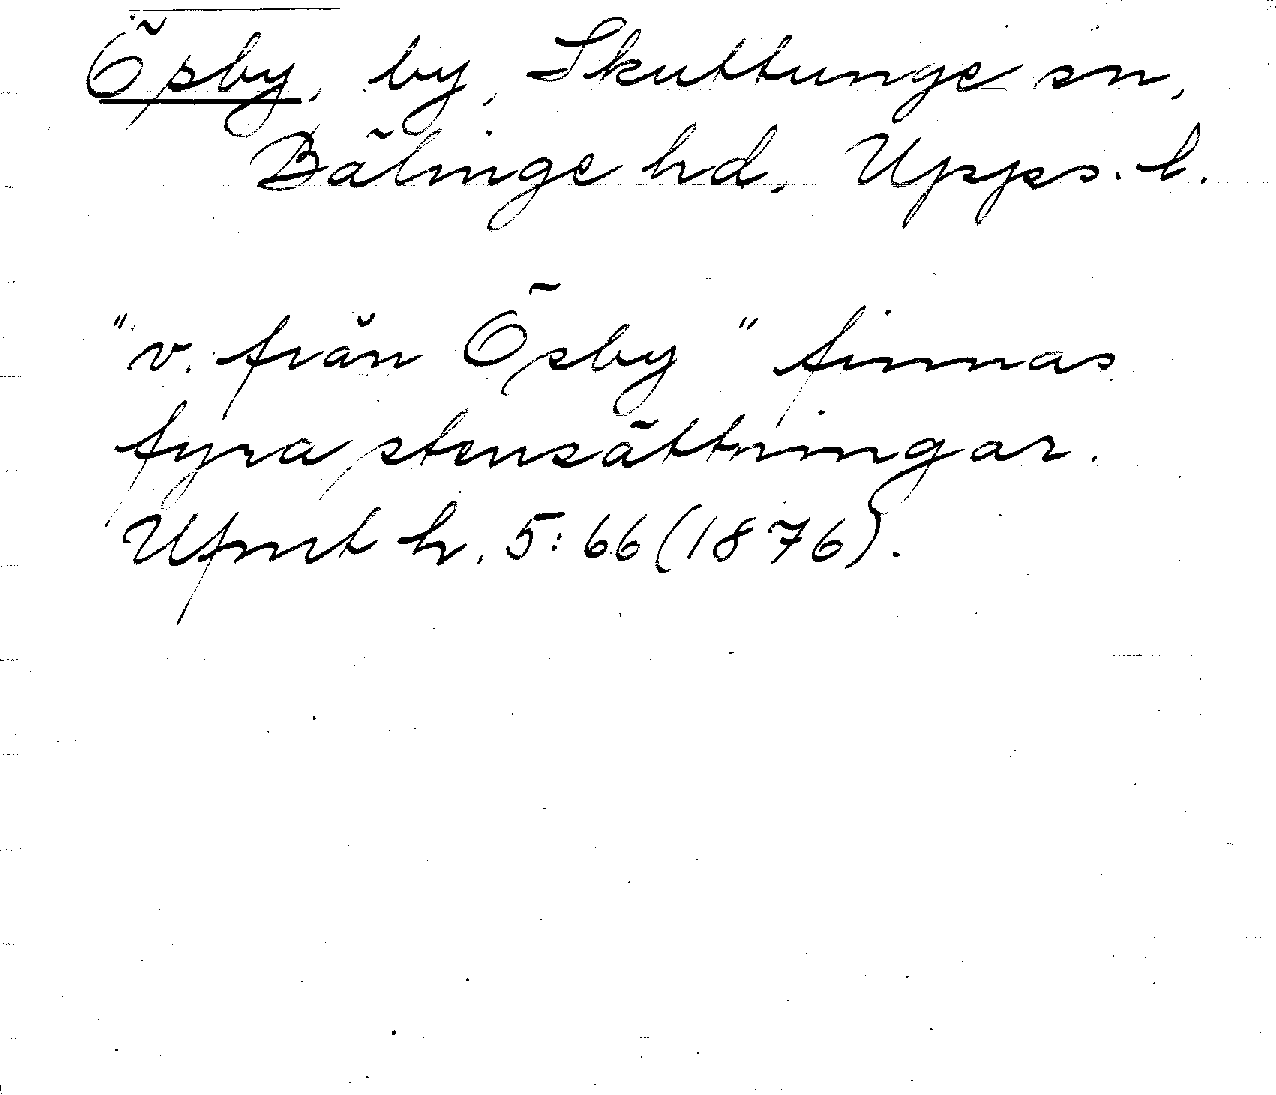 Öpsby, by, Skuttunge sn,
Bälinge hd, Upps. l.
"v. från Öpsby" finnas
fyra stensättningar.
Ufmt h. 5:66 (1876).